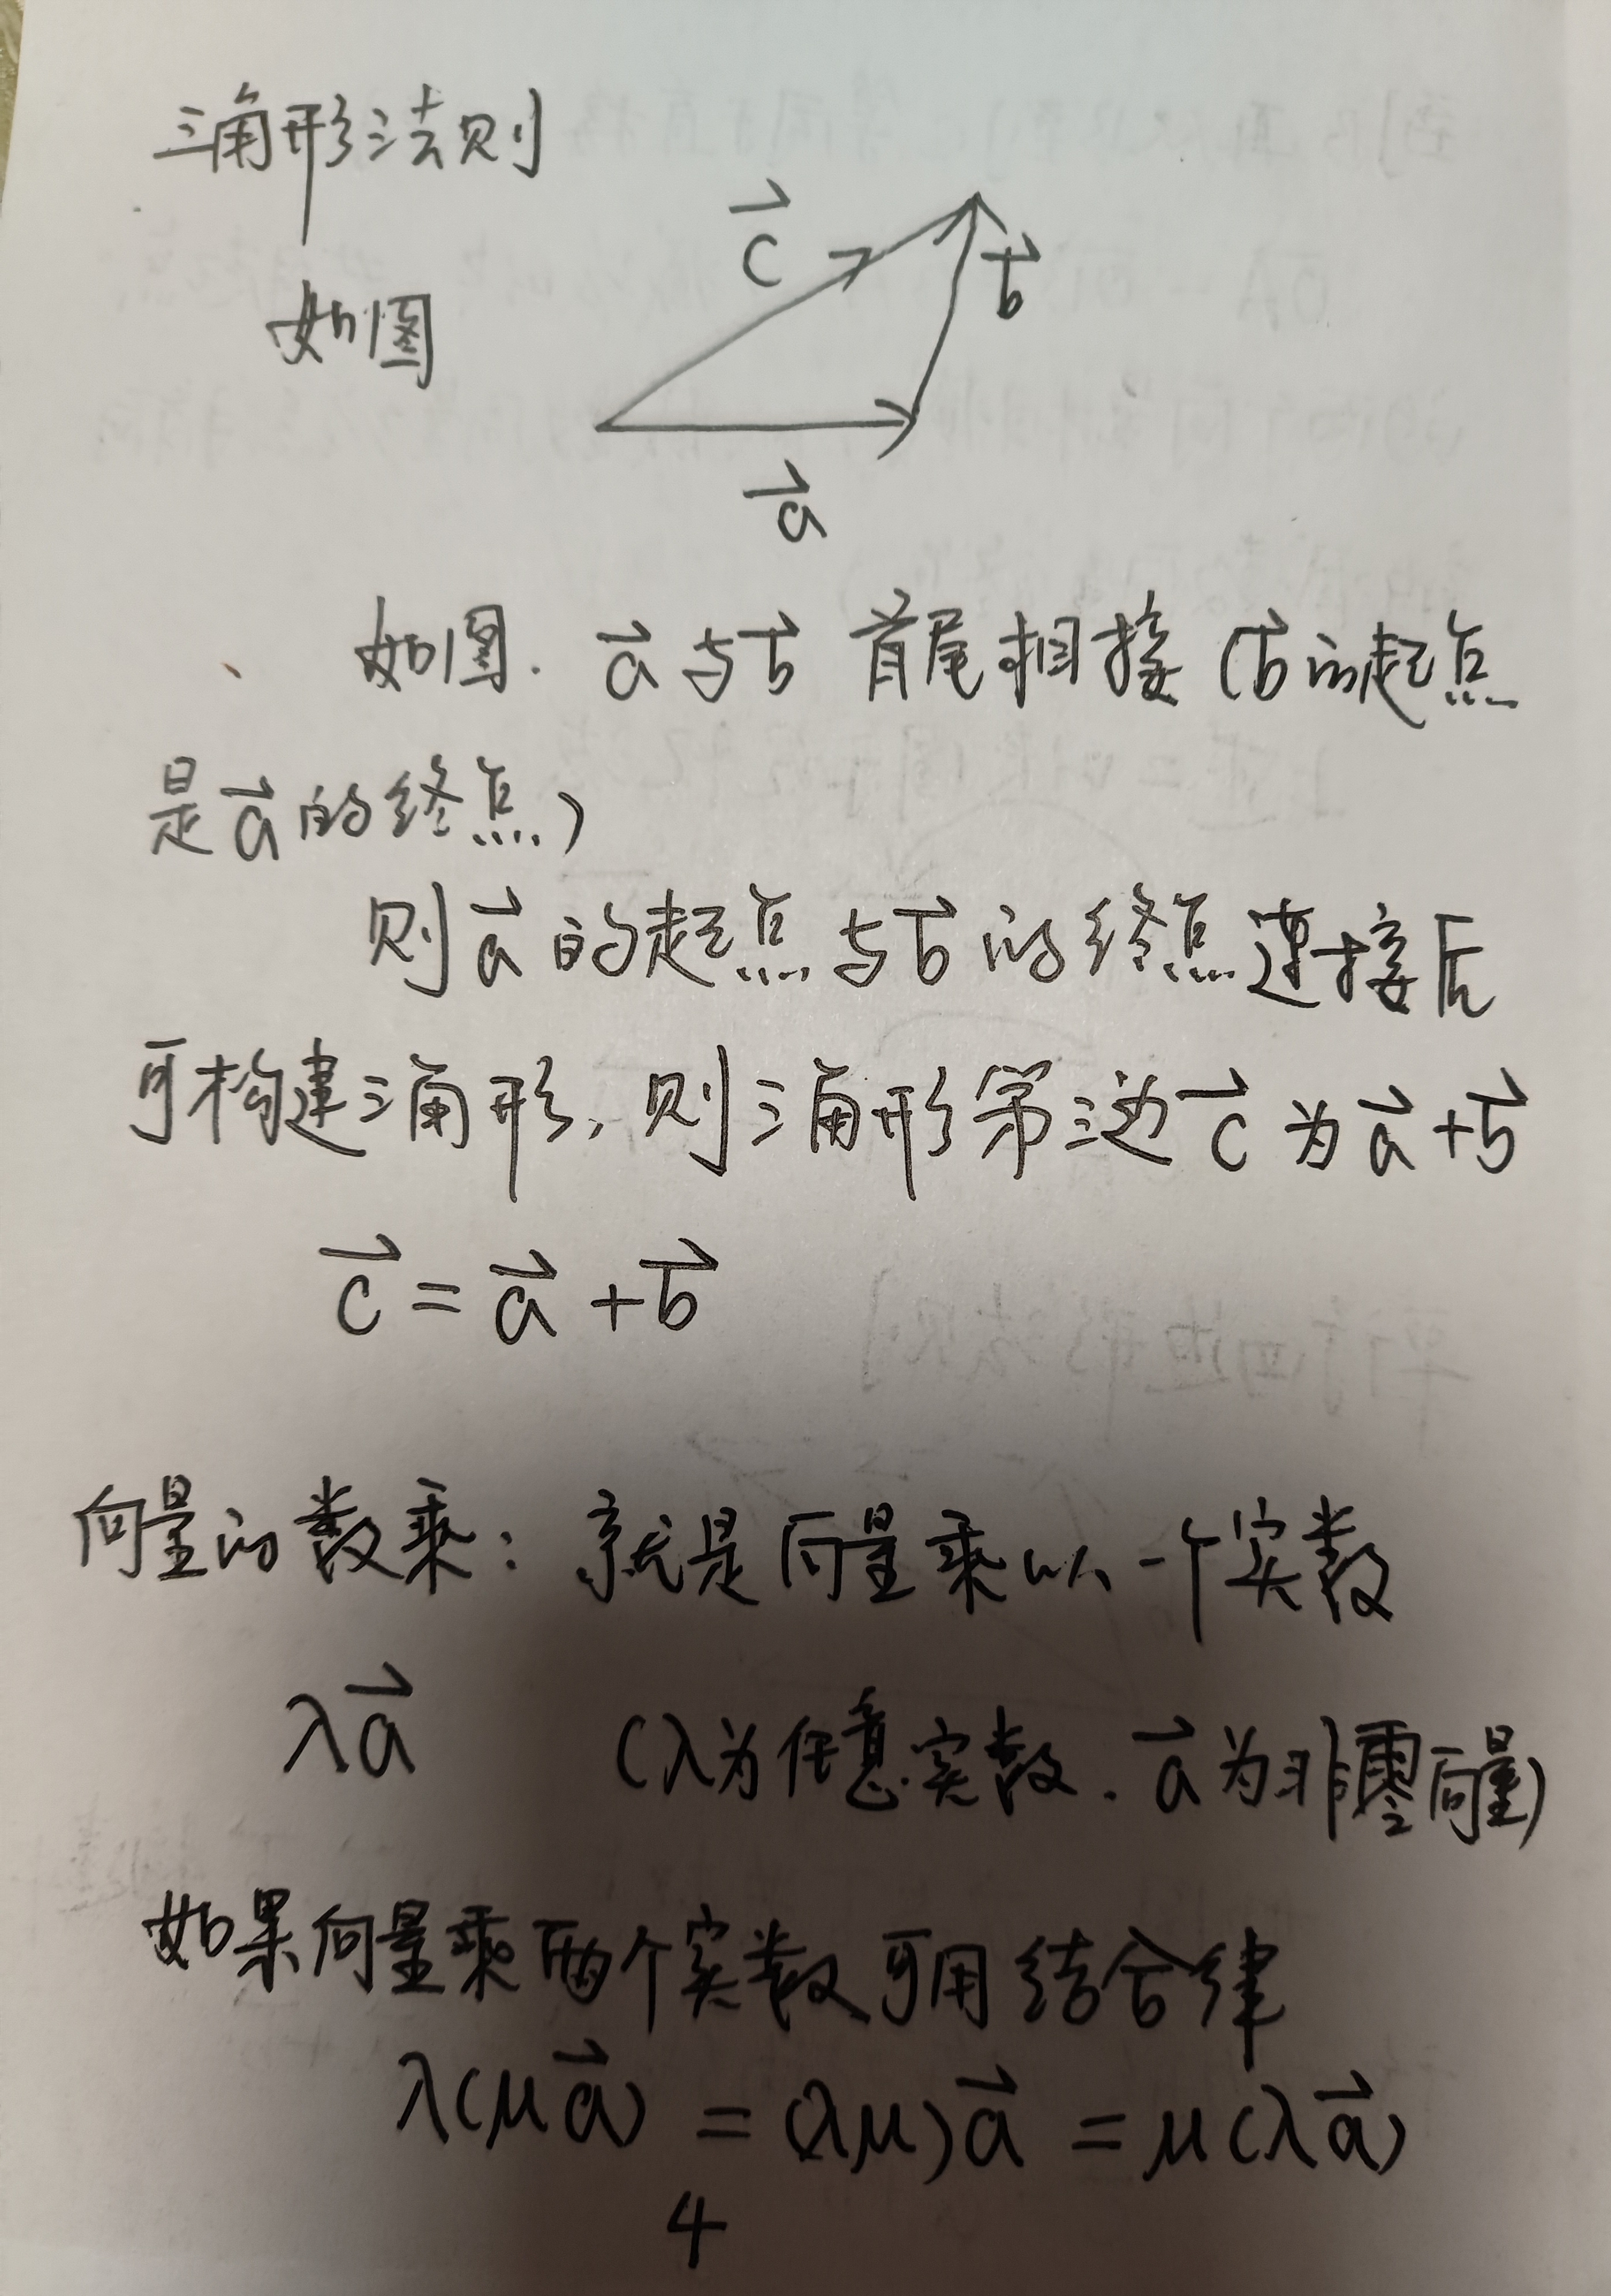 三角形法则
如图
c⃗
b⃗
a⃗
如图. a⃗与b⃗ 首尾相接 (b⃗的起点
是a⃗的终点)
则a⃗的起点与b⃗的终点连接后
可构建三角形, 则三角形第三边c⃗为a⃗+b⃗
c⃗=a⃗+b⃗
向量的数乘: 就是向量乘以一个实数
λa⃗ (λ为任意实数. a⃗为非零向量)
如果向量乘两个实数可用结合律
λ(μa⃗) = (λμ)a⃗ = μ(λa⃗)
4